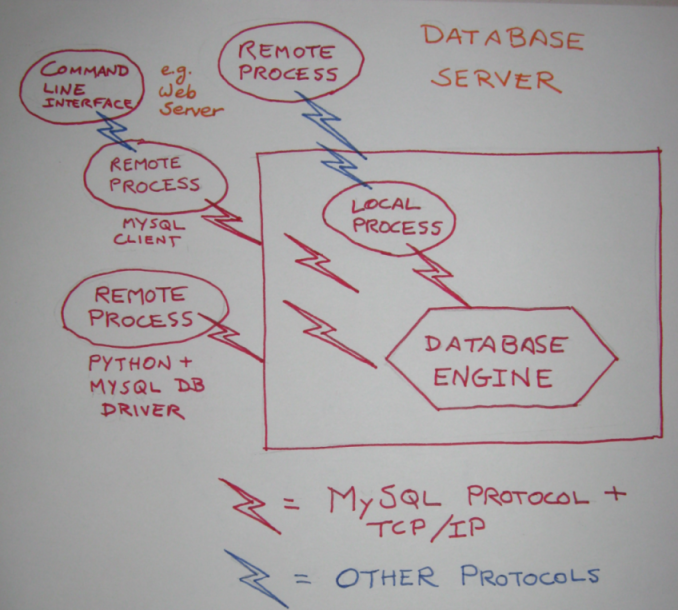 DATABASE
SERVER
REMOTE
PROCESS
e.g.
Web
Server
COMMAND
LINE
INTERFACE
REMOTE
PROCESS
MYSQL
CLIENT
LOCAL
PROCESS
REMOTE
PROCESS
PYTHON +
MYSQL DB
DRIVER
DATABASE
ENGINE
= MySQL PROTOCOL +
TCP/IP
= OTHER PROTOCOLS